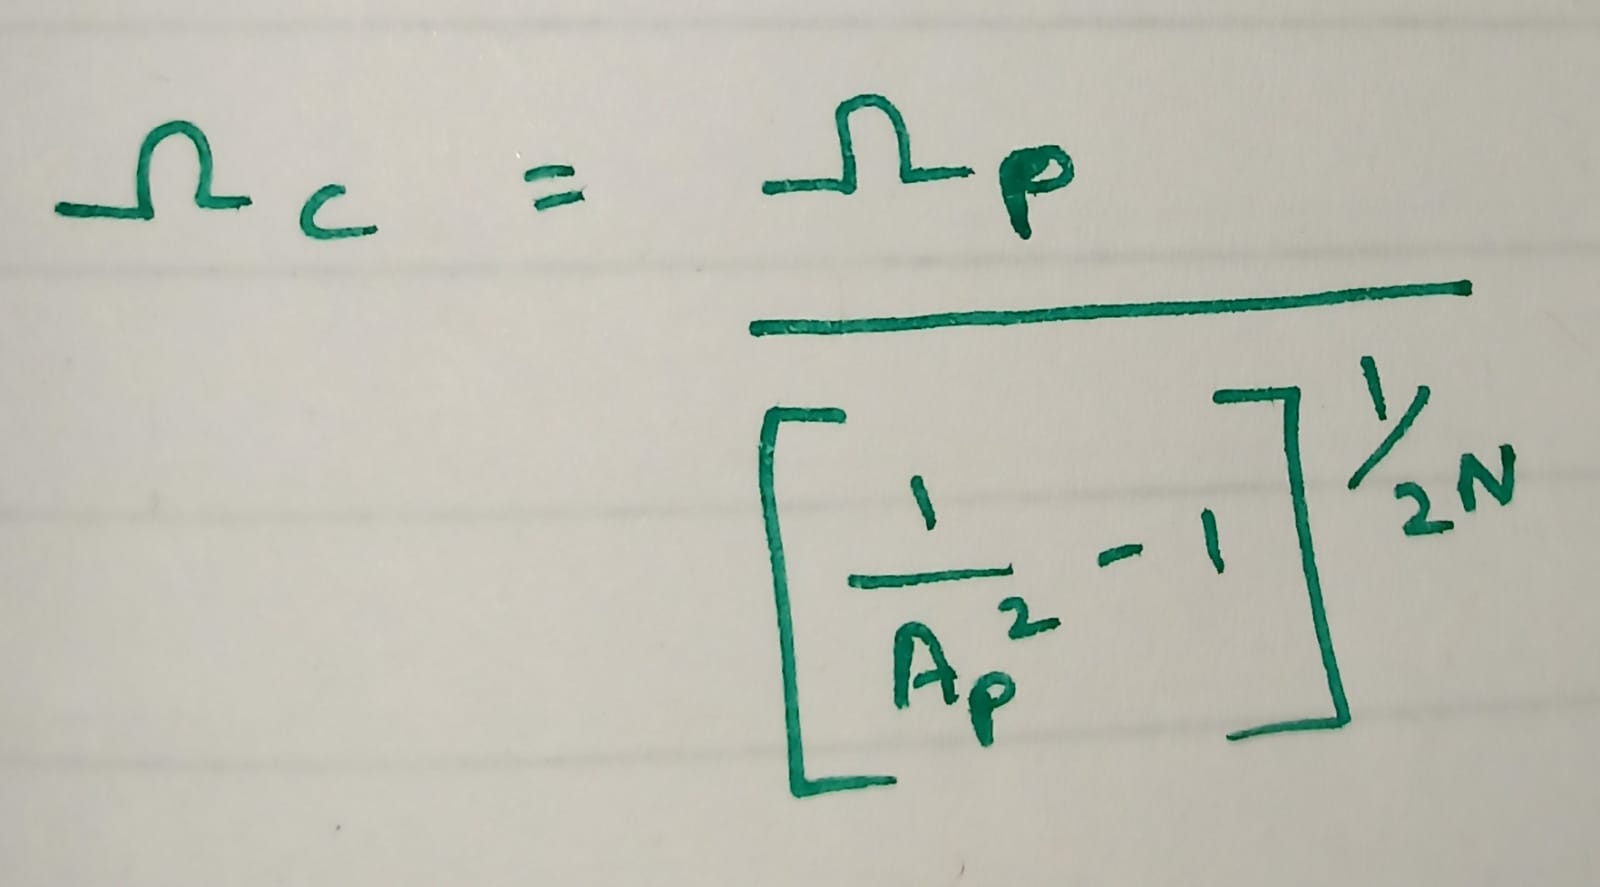 Ω c = Ω p / [ 1 / A p ² - 1 ] ^ 1/2N